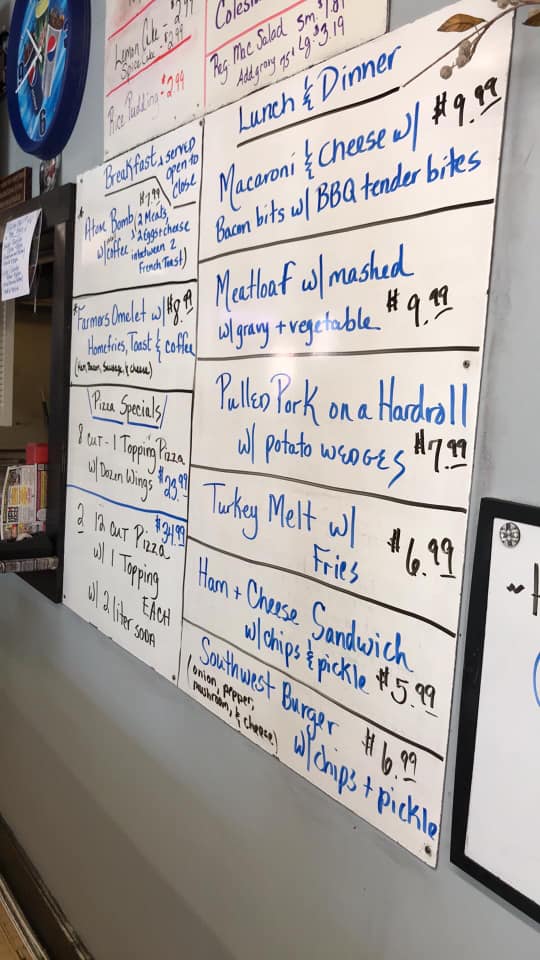 Lemon Cake
Spice Cake - $2.99
Rice Pudding - $2.99
Reg. Mac Salad Sm. $1.81
Add gravy .75¢ Lg $3.19
Breakfast served
open to
close
Atom Bomb $7.99
w/coffee (2 Meats,
2 Eggs + cheese
inbetween 2
French Toast)
Farmers Omelet w/ $8.99
Homefries, Toast & coffee
(Ham, Bacon, Sausage, & cheese)
Pizza Specials
8 cut - 1 Topping Pizza
w/ Dozen Wings $23.99
2 12 cut Pizza $34.99
w/ 1 Topping
EACH
w/ 2 liter soda
Lunch & Dinner
Macaroni & Cheese w/ $9.99
Bacon bits w/ BBQ tender bites
Meatloaf w/ mashed
w/ gravy + vegetable $9.99
Pulled Pork on a Hardroll
w/ potato WEDGES $7.99
Turkey Melt w/
Fries $6.99
Ham + Cheese Sandwich
w/chips & pickle $5.99
Southwest Burger
(onion, pepper,
mushroom, & cheese) $6.99
w/chips + pickle